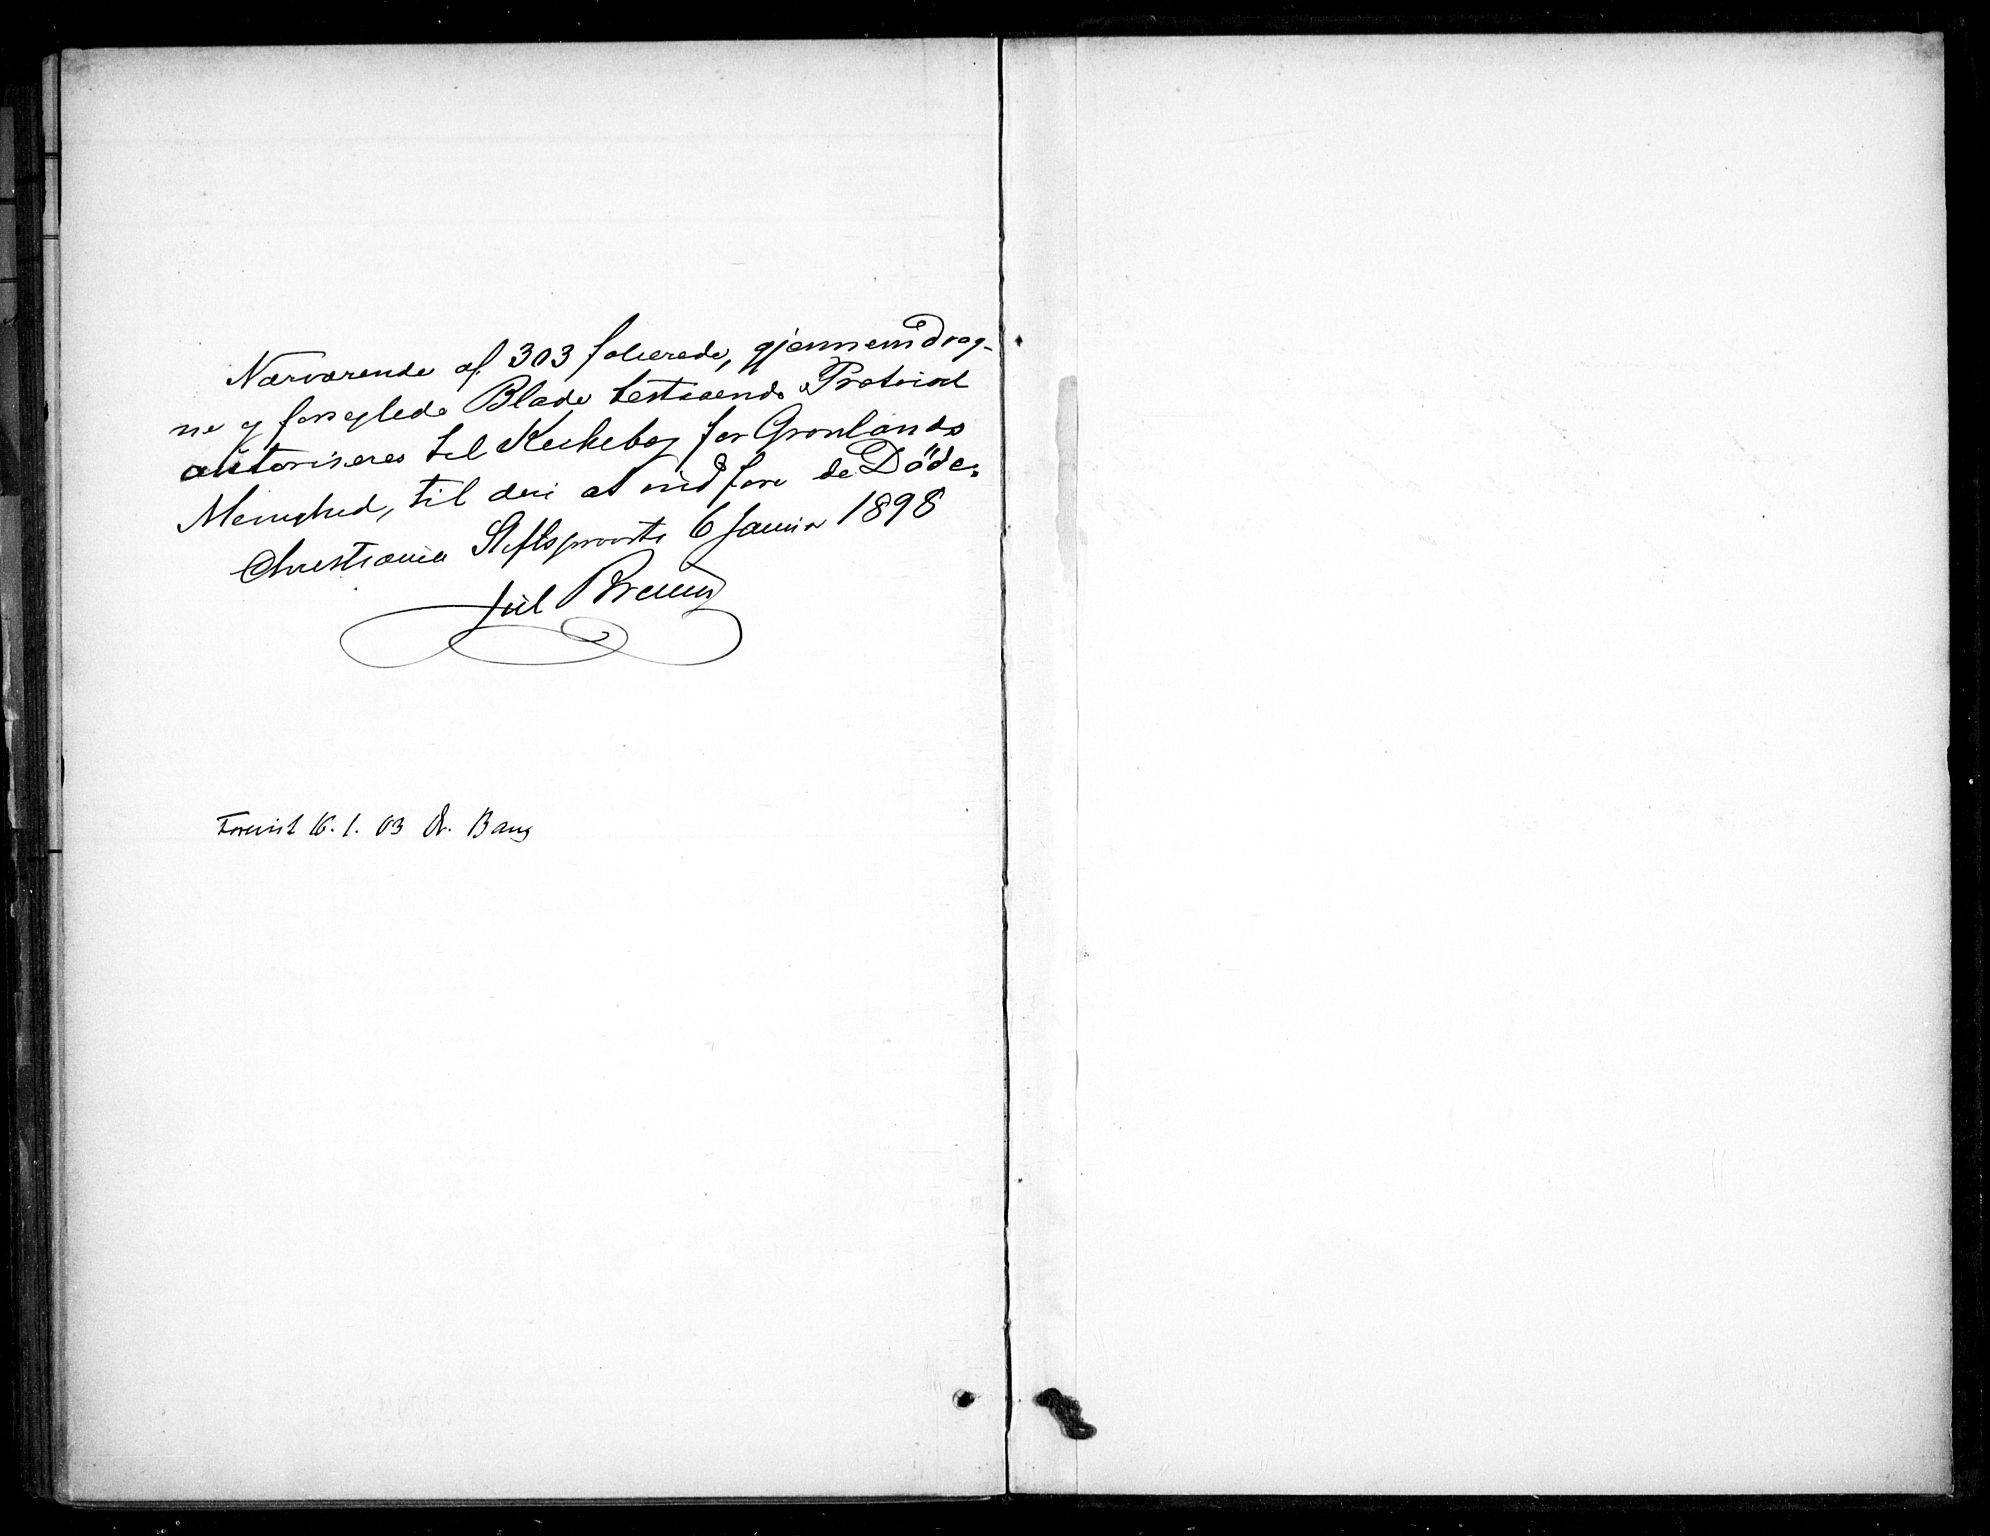 Nærværende af 303 folierede, gjennemdrag-
ne og forseglede Blade bestaaende Protocol
autoriseres til Kirkebog for Grønlands
Menighed, til deri at indføre de Døde.
Christiania Stiftsprovsti 6 Januar 1898
Jul Bruun
Forevist 16.1.03 Dr. Bang